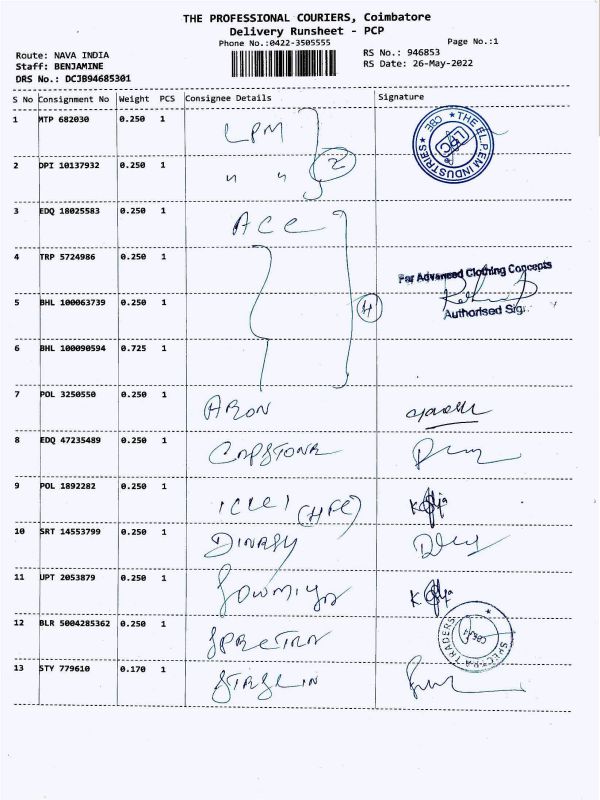 THE PROFESSIONAL COURIERS, Coimbatore
Delivery Runsheet - PCP
Phone No.:0422-3505555
Page No.:1
Route: NAVA INDIA
RS No.: 946853
Staff: BENJAMINE
RS Date: 26-May-2022
DRS No.: DCJB94685301
S No Consignment No Weight PCS Consignee Details Signature
1 MTP 682030 0.250 1 LPM
THE EL.P.EM INDUSTRIES CBE
2 DPI 10137932 0.250 1 " " 2
3 EDQ 18025583 0.250 1 ACC
4 TRP 5724986 0.250 1
For Advanced Clothing Concepts
5 BHL 100063739 0.250 1 4
Authorised Sig.
6 BHL 100090594 0.725 1
7 POL 3250550 0.250 1 ARON
8 EDQ 47235489 0.250 1 CAPSTONE
9 POL 1892282 0.250 1 ICICI (HFC)
10 SRT 14553799 0.250 1
11 UPT 2053879 0.250 1 SOWMIYA
12 BLR 5004285362 0.250 1 SPECTRA
SPECTRA TRADERS
13 STY 779610 0.170 1